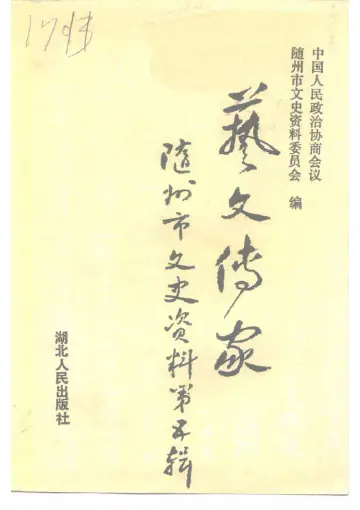 中国人民政治协商会议
随州市文史资料委员会 编
藝文傳家
隨州市文史资料第五辑
湖北人民出版社